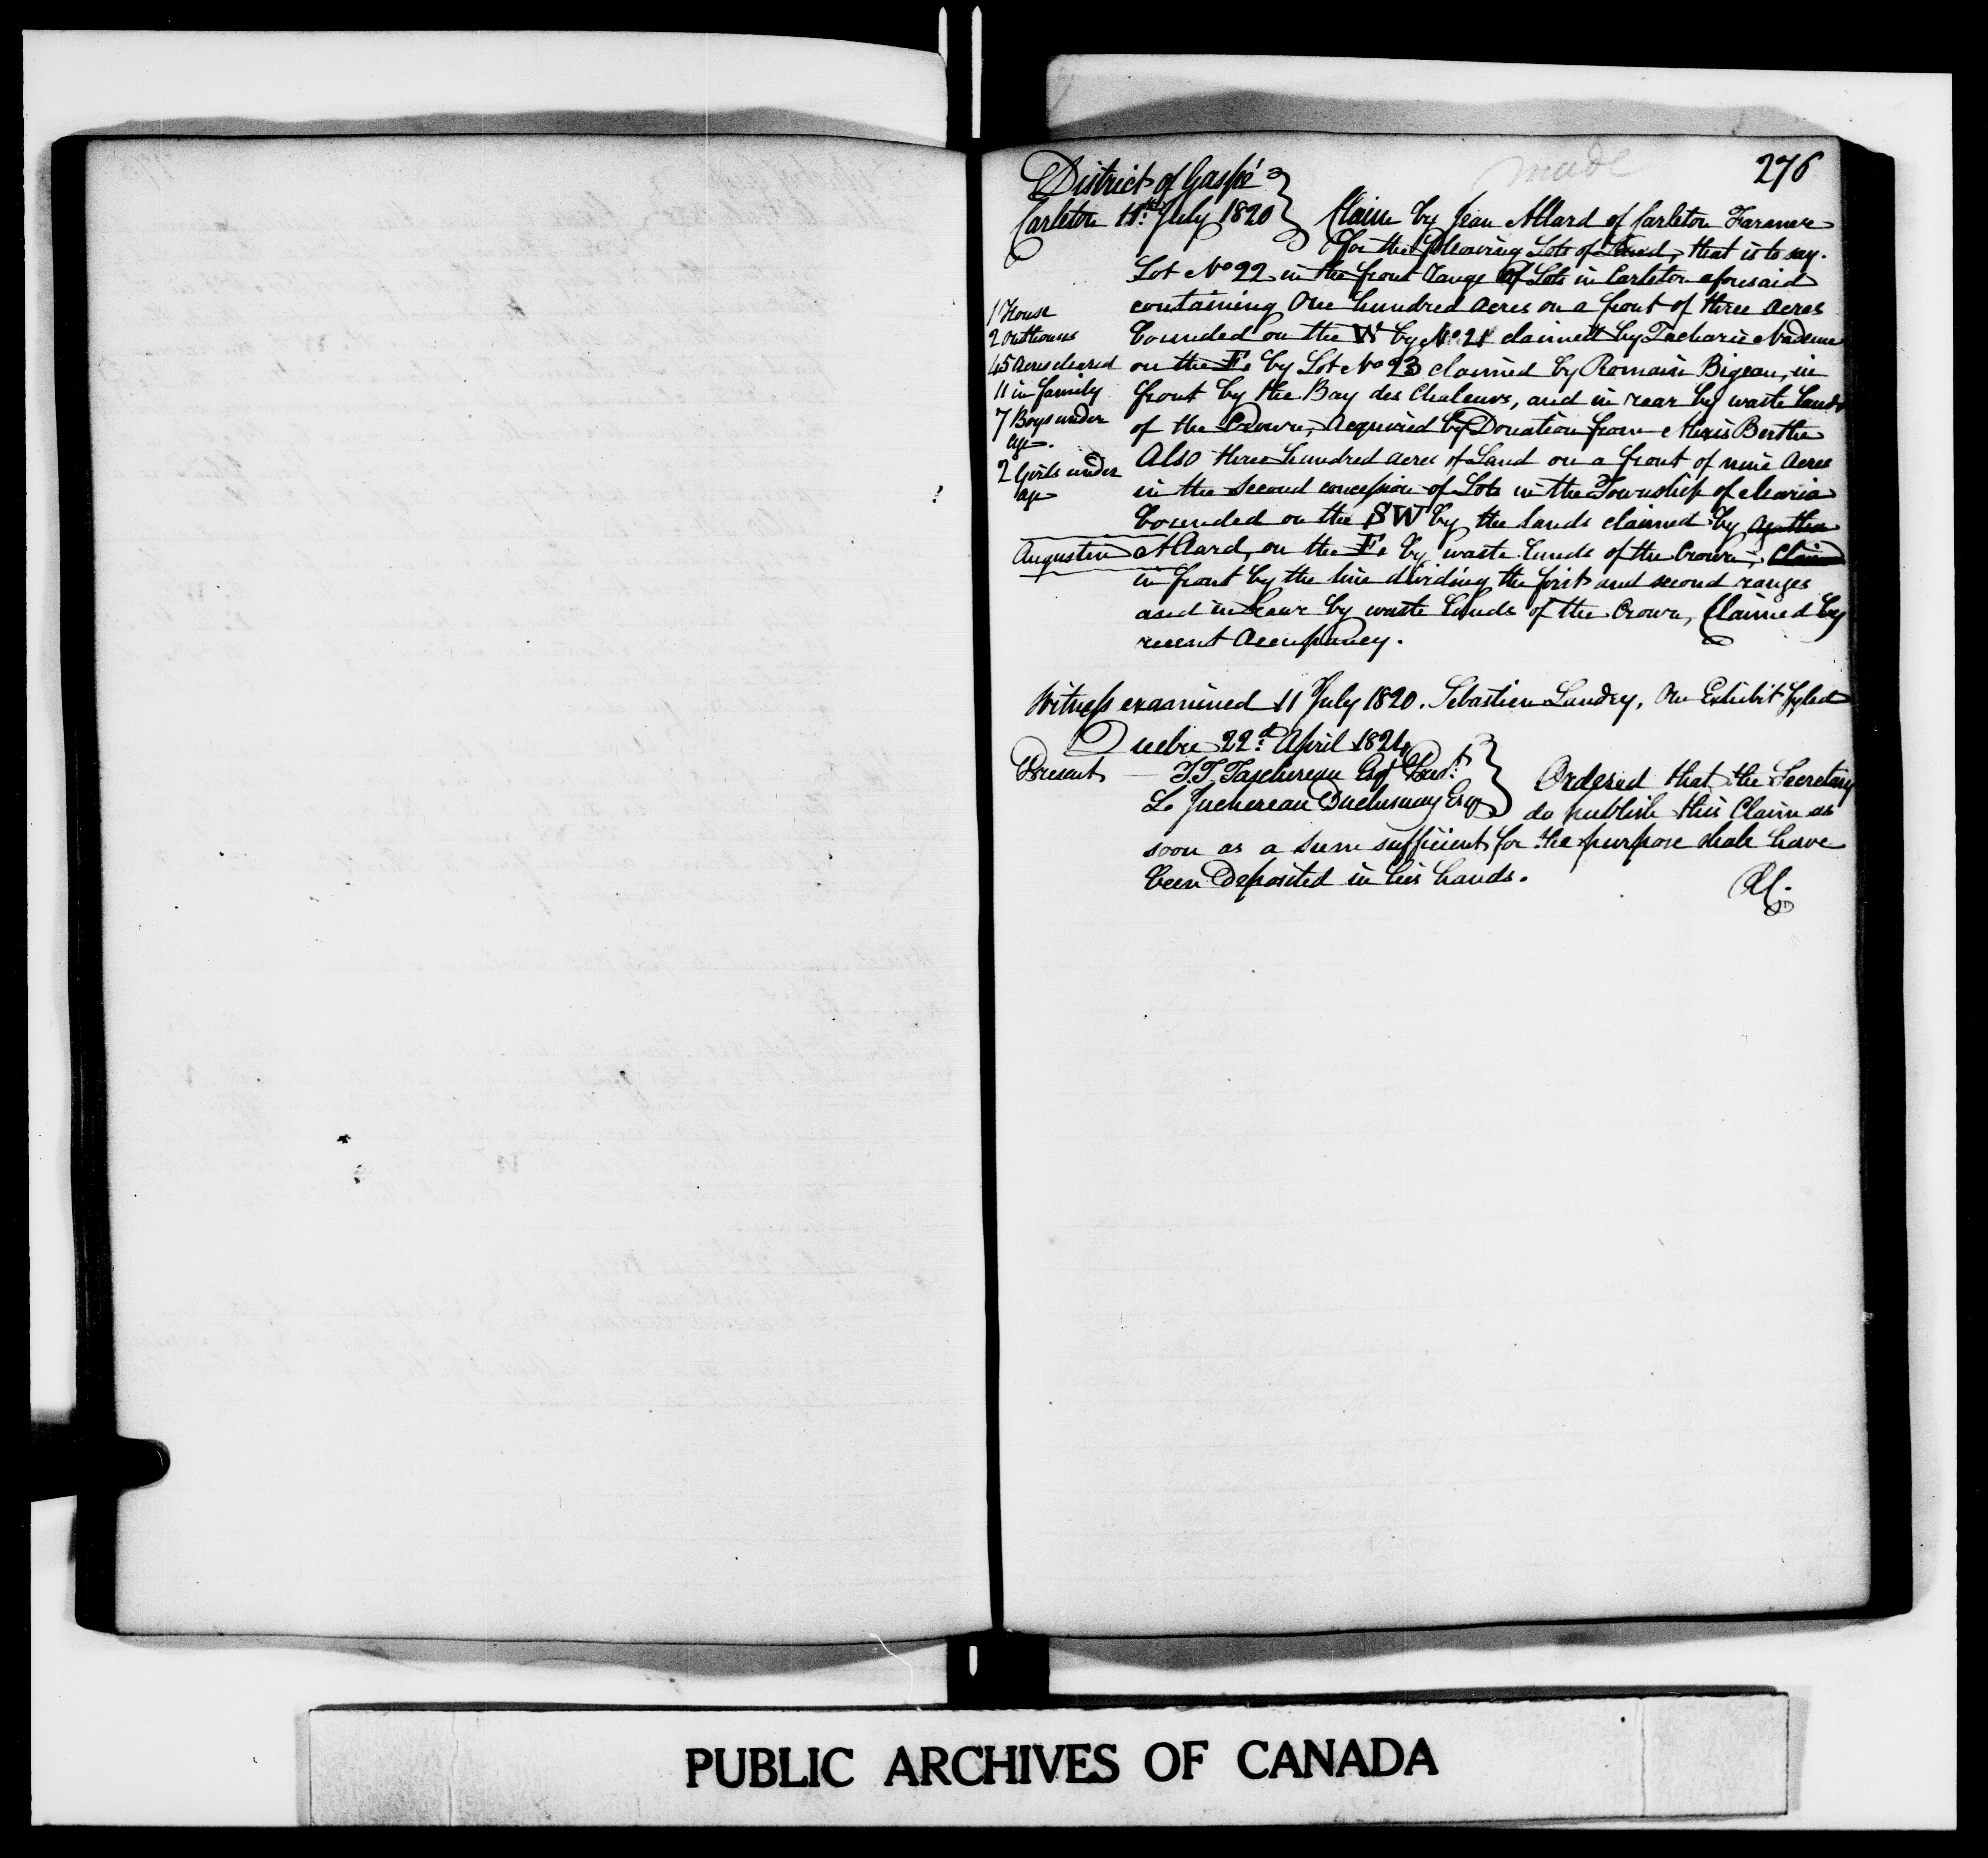 made
276
District of Gaspé
Carleton 11th July 1820
Claim by Jean Allard of Carleton Farmer
for the following Lots of Land, that is to say.
Lot No 22 in the front Range of Lots in Carleton aforesaid
containing One hundred acres on a front of three acres
bounded on the W by No 21 claimed by Zacharie Nadeau
on the E. by Lot No 23 claimed by Romain Bigeau, in
front by the Bay des Chaleurs, and in rear by waste Lands
of the Crown, Acquired by Donation from Alexis Berthe
Also three hundred acres of Land on a front of nine Acres
in the Second concession of Lots in the Township of Maria
bounded on the SW by the lands claimed by
Augustin Allard, on the E. by waste Lands of the Crown, Claim
in front by the line dividing the first and second ranges
and in Rear by waste Lands of the Crown, Claimed by
recent Occupancy.
1 House
2 outhouses
45 Acres cleared
11 in family
7 Boys under
age.
2 Girls under
age
Witness examined 11 July 1820. Sebastien Landry, One Exhibit fyled
Quebec 22d April 1824
Present — J.T. Taschereau Esqr Presdt
L. Juchereau Duchesnay Esqr
Ordered that the Secretary
do publish this Claim as
soon as a sum sufficient for the purpose shall have
been Deposited in his hands.
PUBLIC ARCHIVES OF CANADA